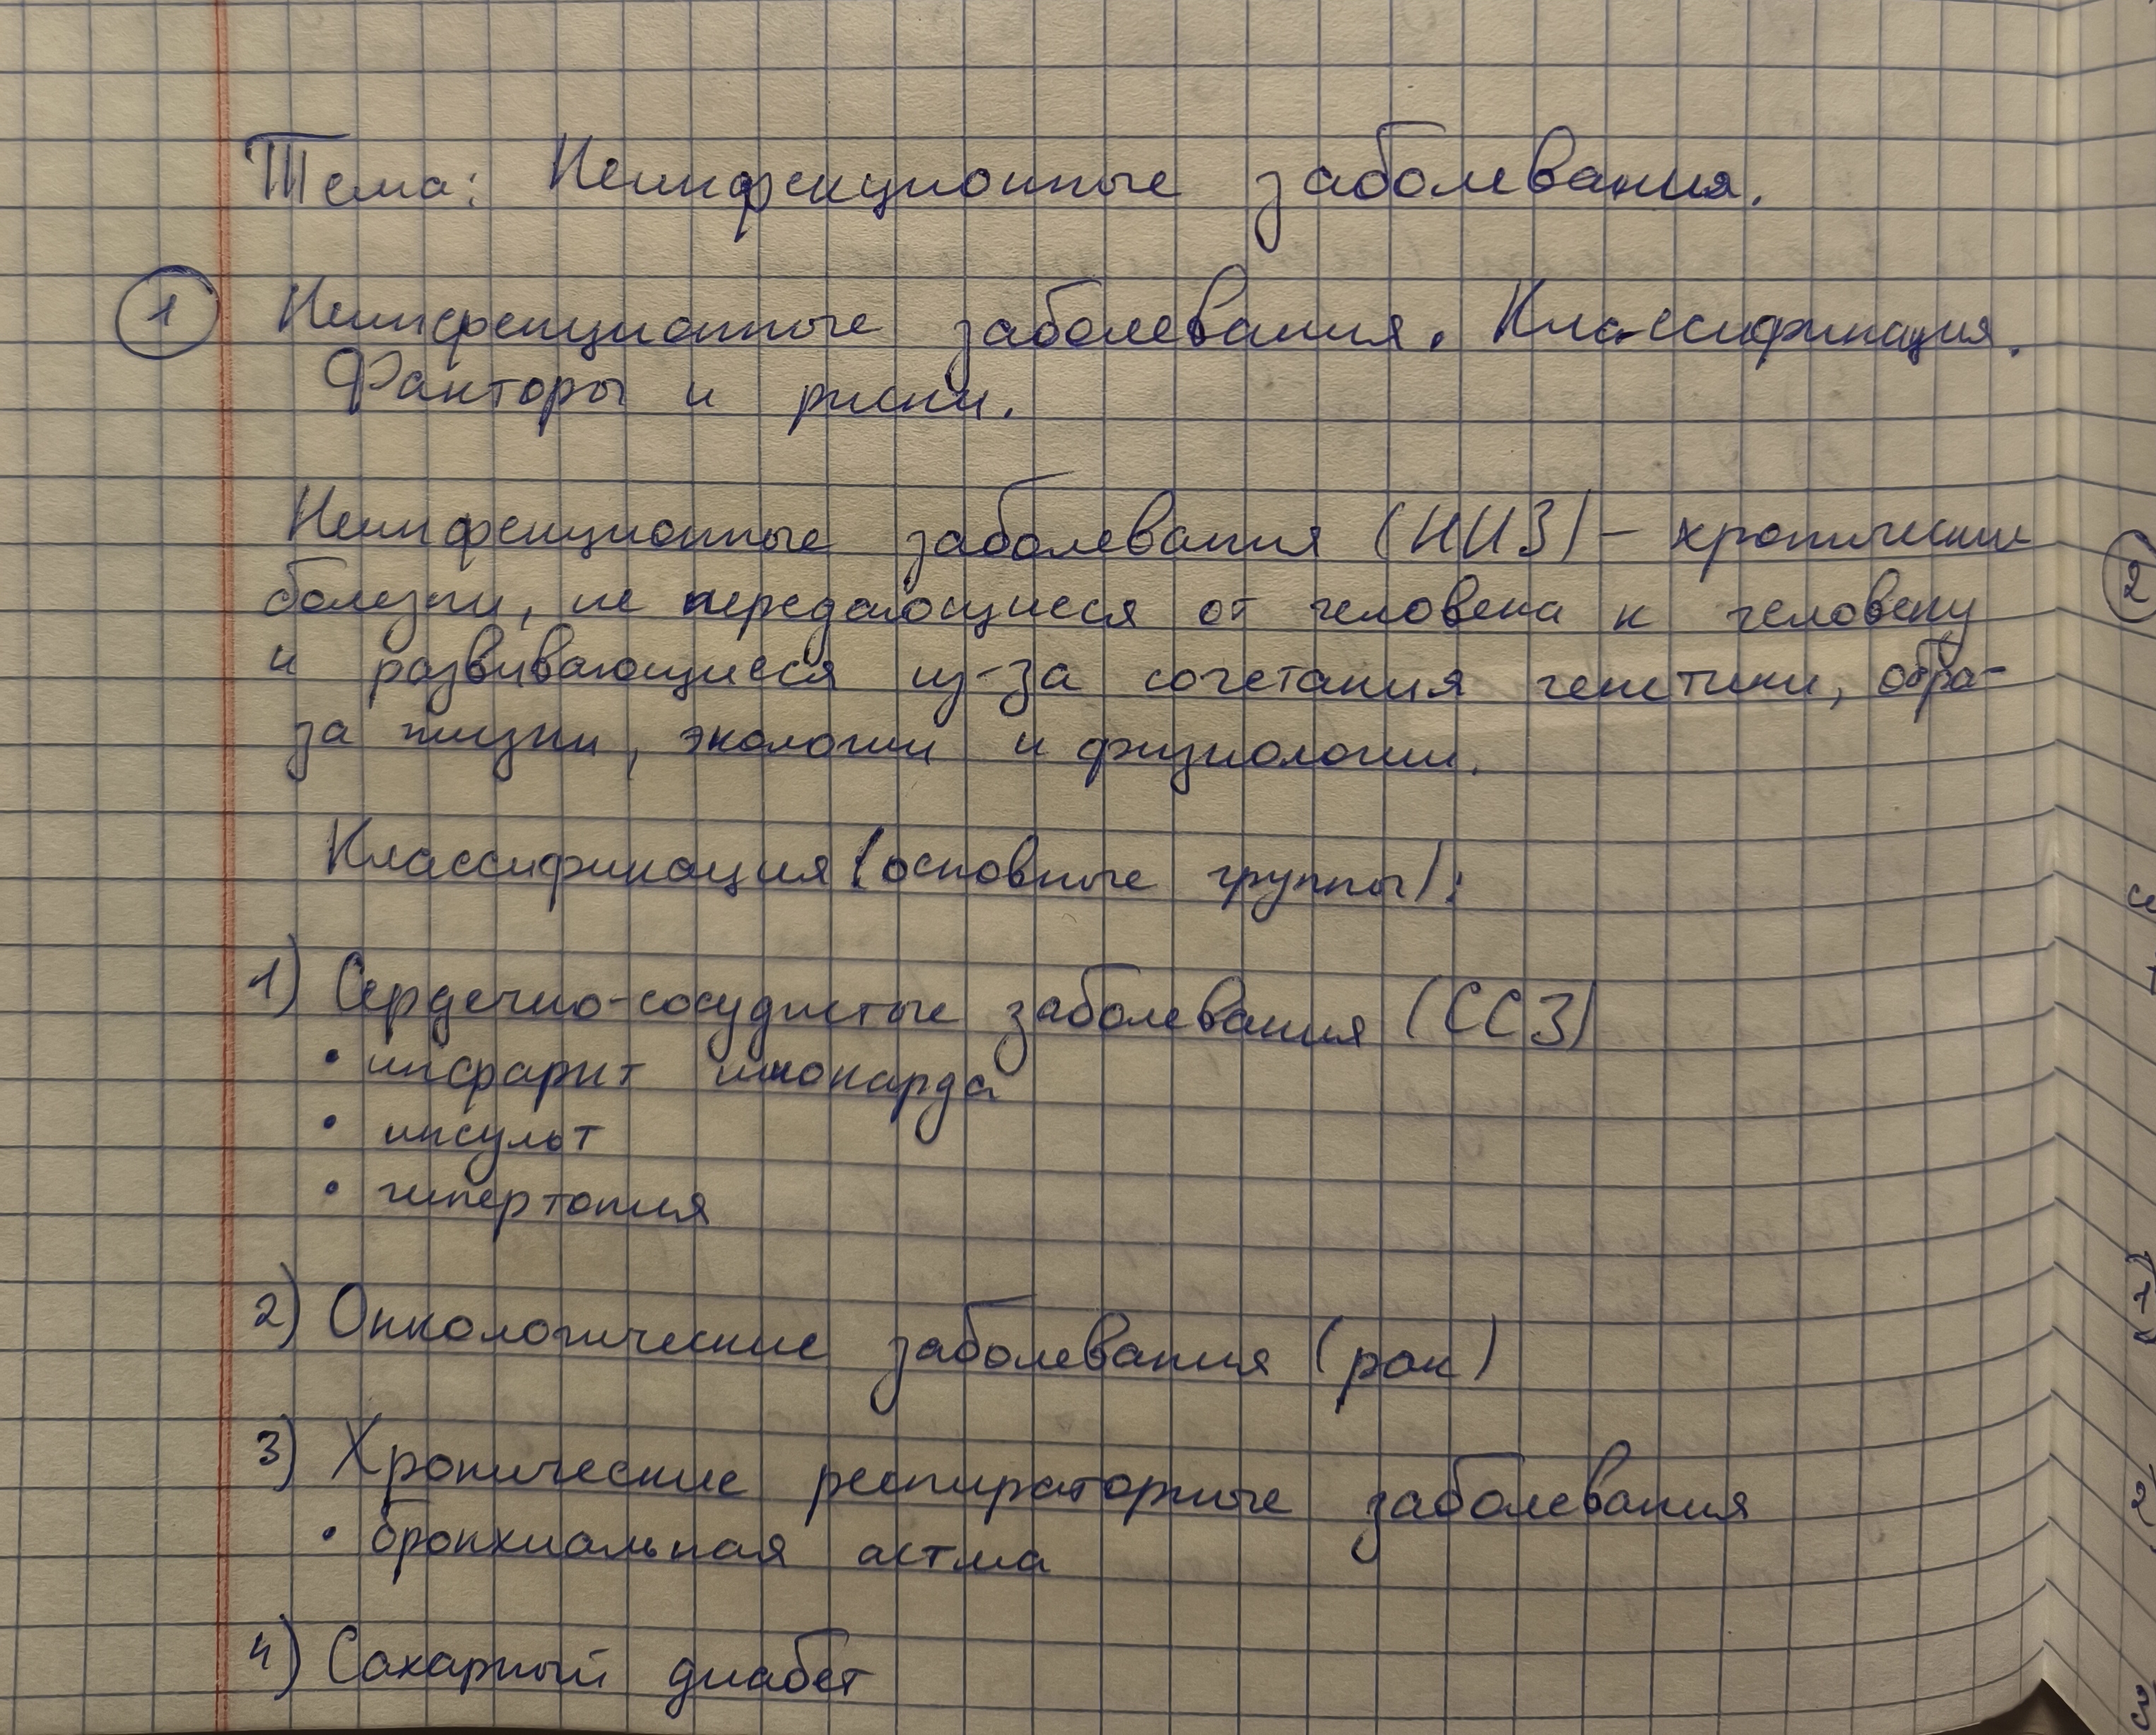 Тема: Неинфекционные заболевания.
1 Неинфекционные заболевания. Классификация.
Факторы и риски.
Неинфекционные заболевания (НИЗ) – хронические
болезни, не передающиеся от человека к человеку
и развивающиеся из-за сочетания генетики, обра-
за жизни, экологии и физиологии.
Классификация (основные группы):
1) Сердечно-сосудистые заболевания (ССЗ)
• инфаркт миокарда
• инсульт
• гипертония
2) Онкологические заболевания (рак)
3) Хронические респираторные заболевания
• бронхиальная астма
4) Сахарный диабет
2
1)
2)
3)